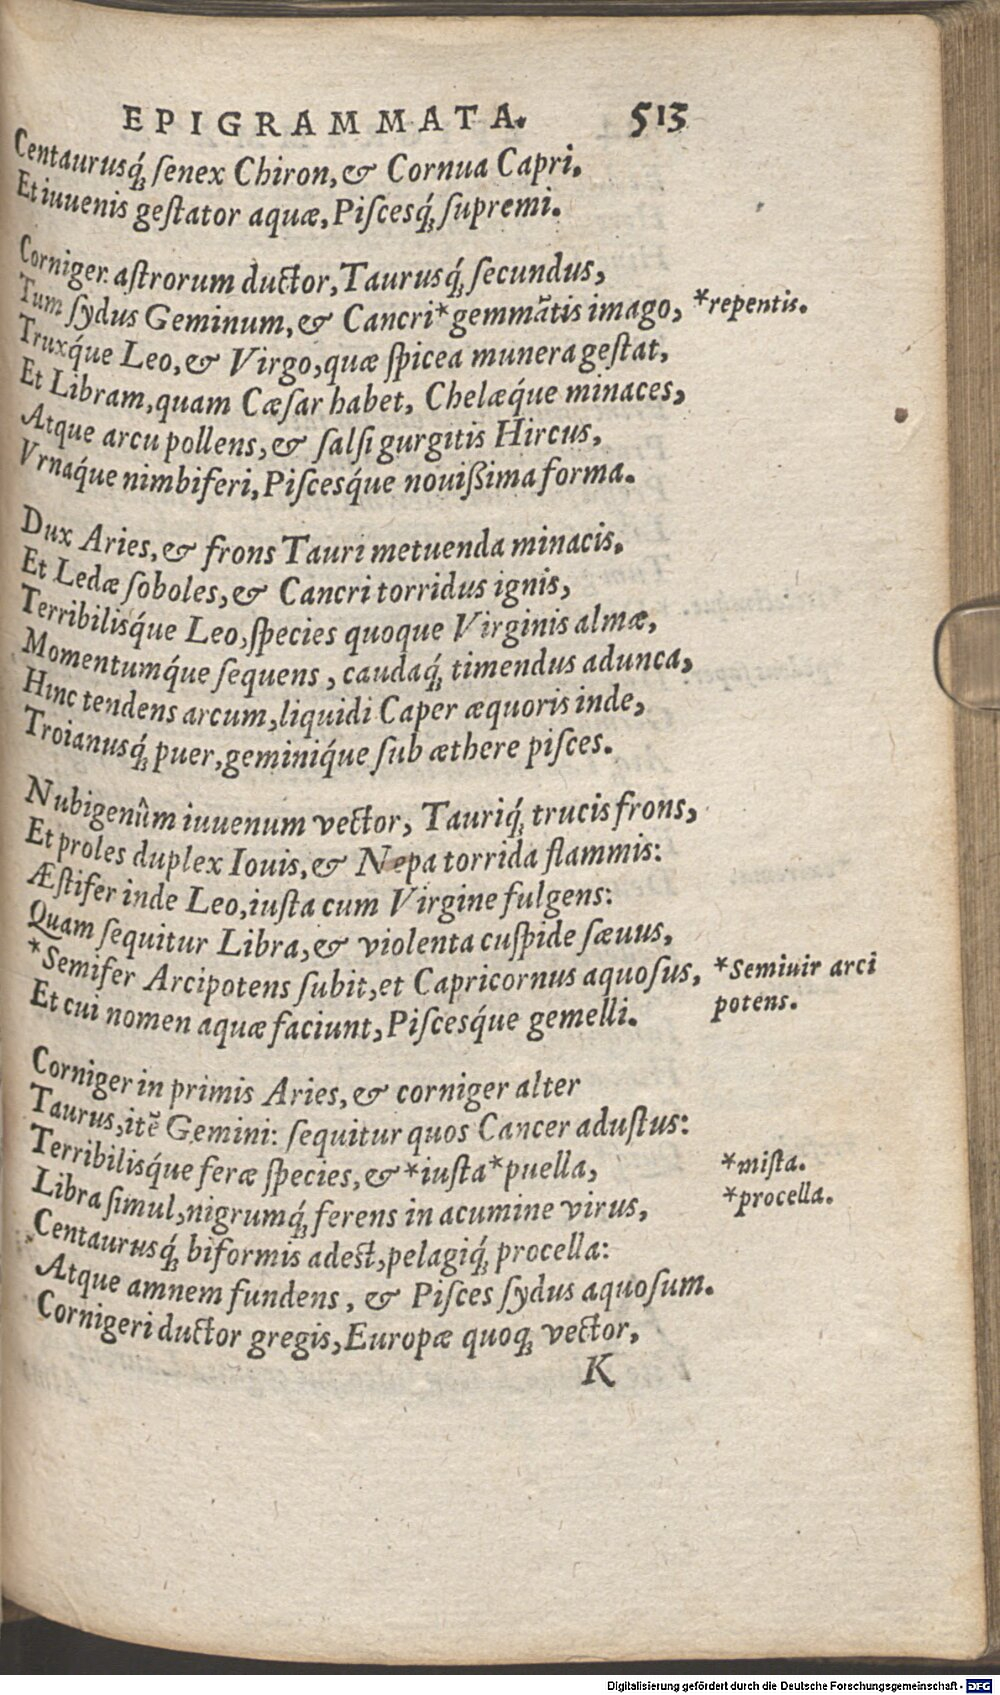 EPIGRAMMATA. 513
Centaurusq́ꝫ ſenex Chiron, & Cornua Capri.
Et iuuenis geſtator aquæ, Piſcesq́ꝫ ſupremi.
Corniger astrorum ductor, Taurusq́ꝫ ſecundus,
Tum ſydus Geminum, & Cancri*gemmãtis imago, *repentis.
Truxq́ue Leo, & Virgo, quæ ſpicea munera geſtat,
Et Libram, quam Cæſar habet, Chelæq́ue minaces,
Atque arcu pollens, & ſalſi gurgitis Hircus,
Vrnaq́ue nimbiferi, Piſcesq́ue nouißima forma.
Dux Aries, & frons Tauri metuenda minacis.
Et Ledæ ſoboles, & Cancri torridus ignis,
Terribilisq́ue Leo, ſpecies quoque Virginis almæ,
Momentumq́ue ſequens, caudaq́ꝫ timendus adunca,
Hinc tendens arcum, liquidi Caper æquoris inde,
Troianusq́ꝫ puer, geminiq́ue ſub æthere piſces.
Nubigenûm iuuenum vector, Tauriq́ꝫ trucis frons,
Et proles duplex Iouis, & Nepa torrida flammis:
Æſtifer inde Leo, iuſta cum Virgine fulgens:
Quam ſequitur Libra, & violenta cuſpide ſæuus,
*Semifer Arcipotens ſubit, et Capricornus aquoſus, *Semiuir arci
Et cui nomen aquæ faciunt, Piſcesq́ue gemelli. potens.
Corniger in primis Aries, & corniger alter
Taurus, itẽ Gemini: ſequitur quos Cancer aduſtus:
Terribilisq́ue feræ ſpecies, & *iuſta *puella, *miſta.
Libra ſimul, nigrumq́ꝫ ferens in acumine virus, *procella.
Centaurusq́ꝫ biformis adeſt, pelagiq́ꝫ procella:
Atque amnem fundens, & Piſces ſydus aquoſum.
Cornigeri ductor gregis, Europæ quoqꝫ vector,
K
Digitalisierung gefördert durch die Deutsche Forschungsgemeinschaft - DFG